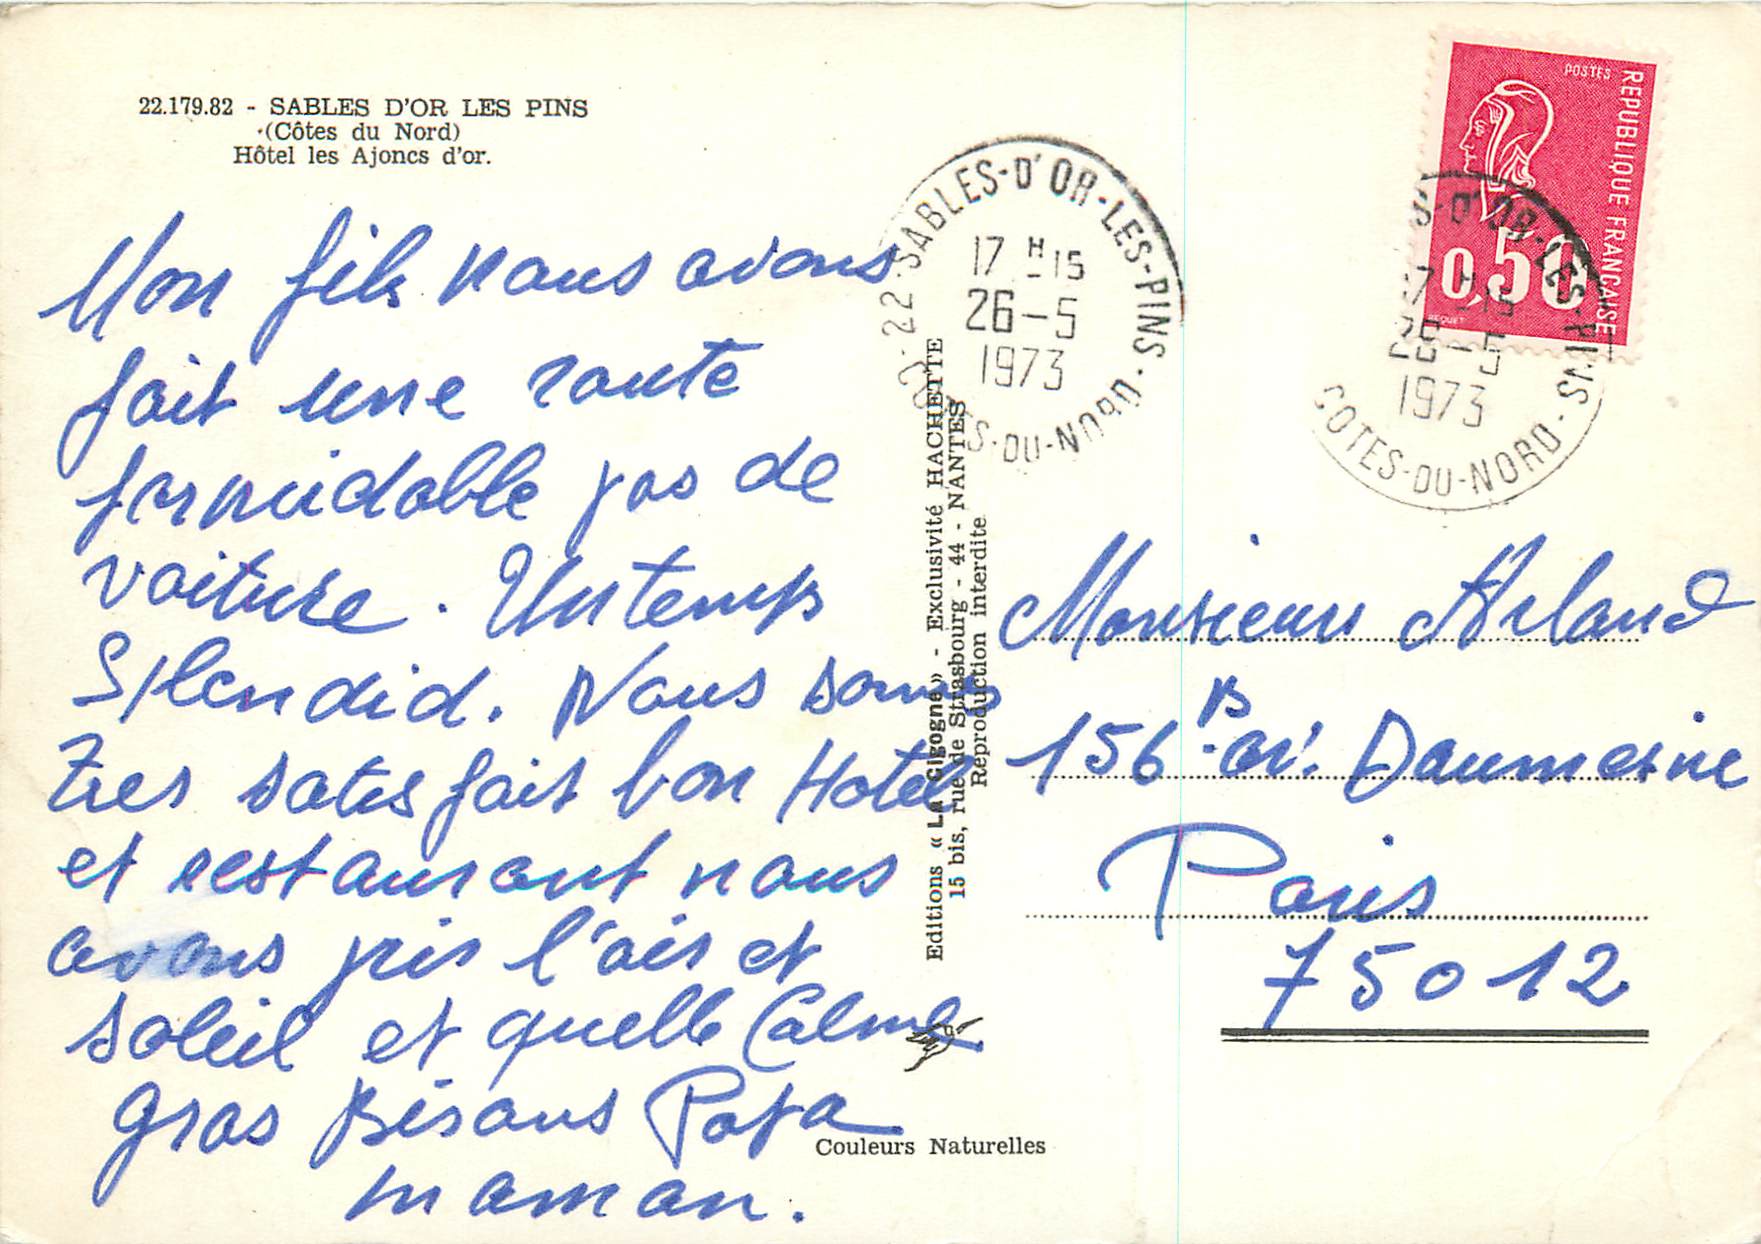 22.179.82 - SABLES D'OR LES PINS
(Côtes du Nord)
Hôtel les Ajoncs d'or.
Mon fils nous avons
fait une route
formidable pas de
voiture. Un temps
Splendid. Nous sommes
Tres satisfait bon Hotel
et restaurant nous
avons pris l'air et
soleil et quelle Calme
gros Bisous Papa
maman.
Editions « La Cigogne » - Exclusivité HACHETTE
15 bis, rue de Strasbourg - 44 - NANTES
Reproduction interdite
Couleurs Naturelles
22 SABLES-D'OR-LES-PINS
17 H 15
26-5
1973
CÔTES-DU-NORD
POSTES
REPUBLIQUE FRANÇAISE
0,50
BEQUET
S-D'OR-LES-PINS
17 H 15
26-5
1973
COTES-DU-NORD
Monsieur Arlaud
156 B av. Daumesnie
Paris
75012